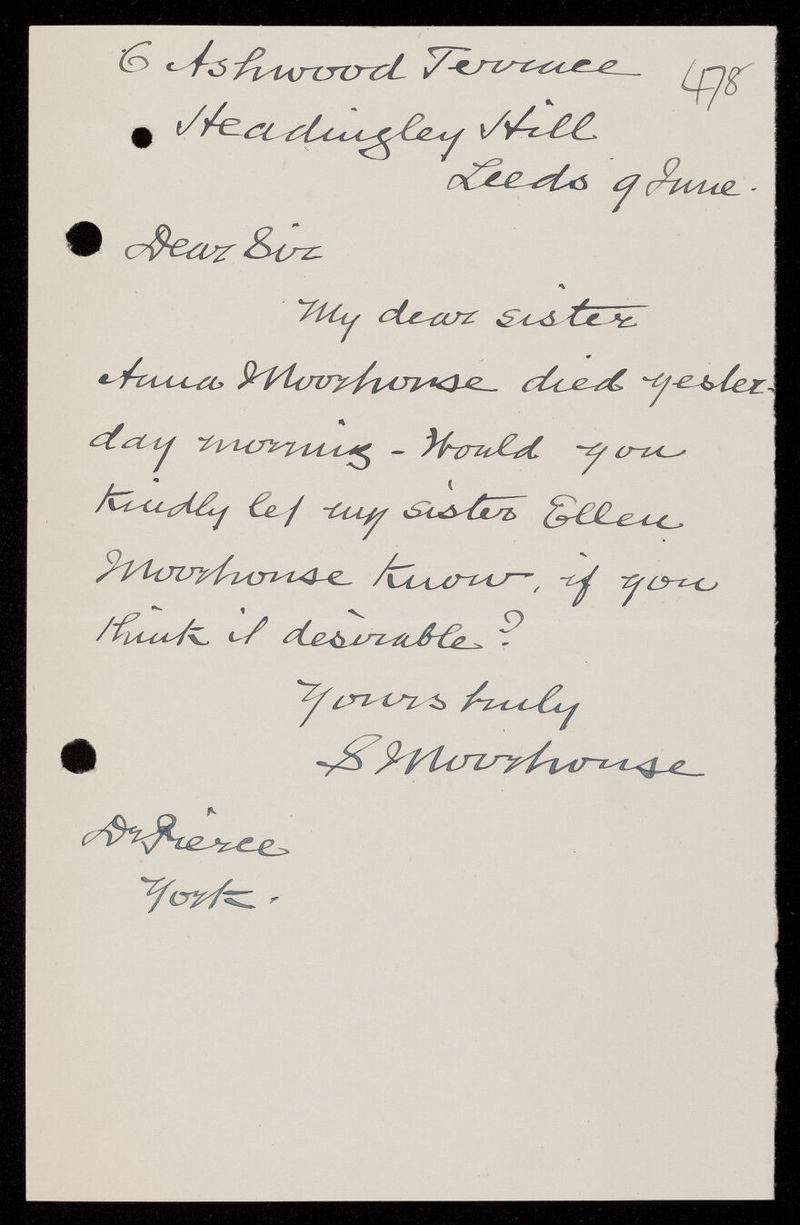 6 Ashwood Terrace 478
Headingley Hill
Leeds 9 June.
Dear Sir
My dear sister
Anna Moorhouse died yester-
day morning - Would you
kindly let my sister Ellen
Moorhouse know, if you
think it desirable?
Yours truly
S Moorhouse
Dr Pierce
York.